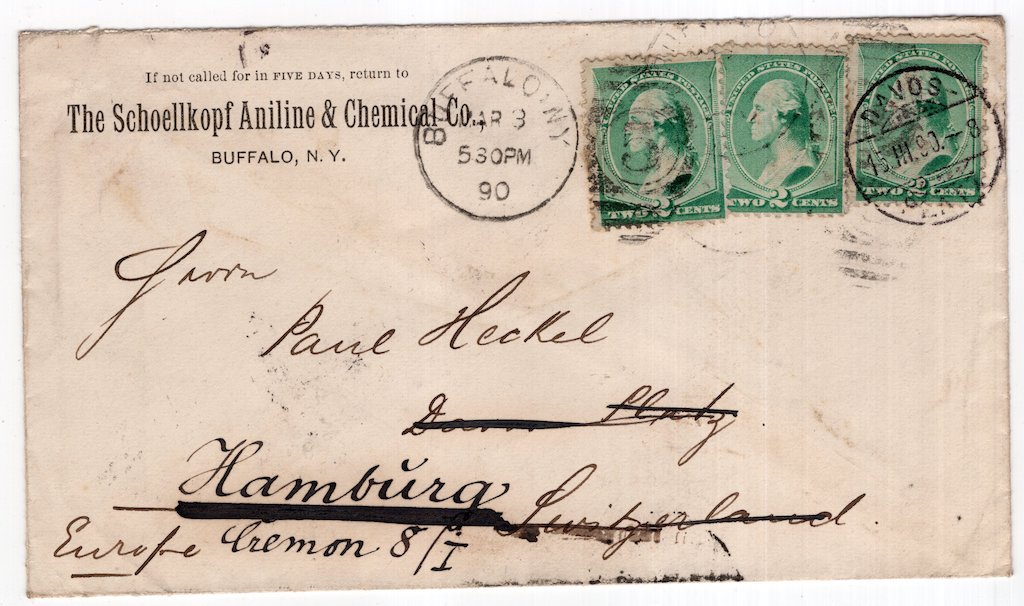 If not called for in FIVE DAYS, return to
The Schoellkopf Aniline & Chemical Co.,
BUFFALO, N. Y.
BUFFALO, N.Y.
MAR 3
530PM
90
UNITED STATES POSTAGE
TWO 2 CENTS
UNITED STATES POSTAGE
TWO 2 CENTS
TWO 2 CENTS
DAVOS
15.III.90.-8
Herrn
Paul Heckel
Davos Platz
Hamburg
Switzerland.
Europe Cremon 8/I